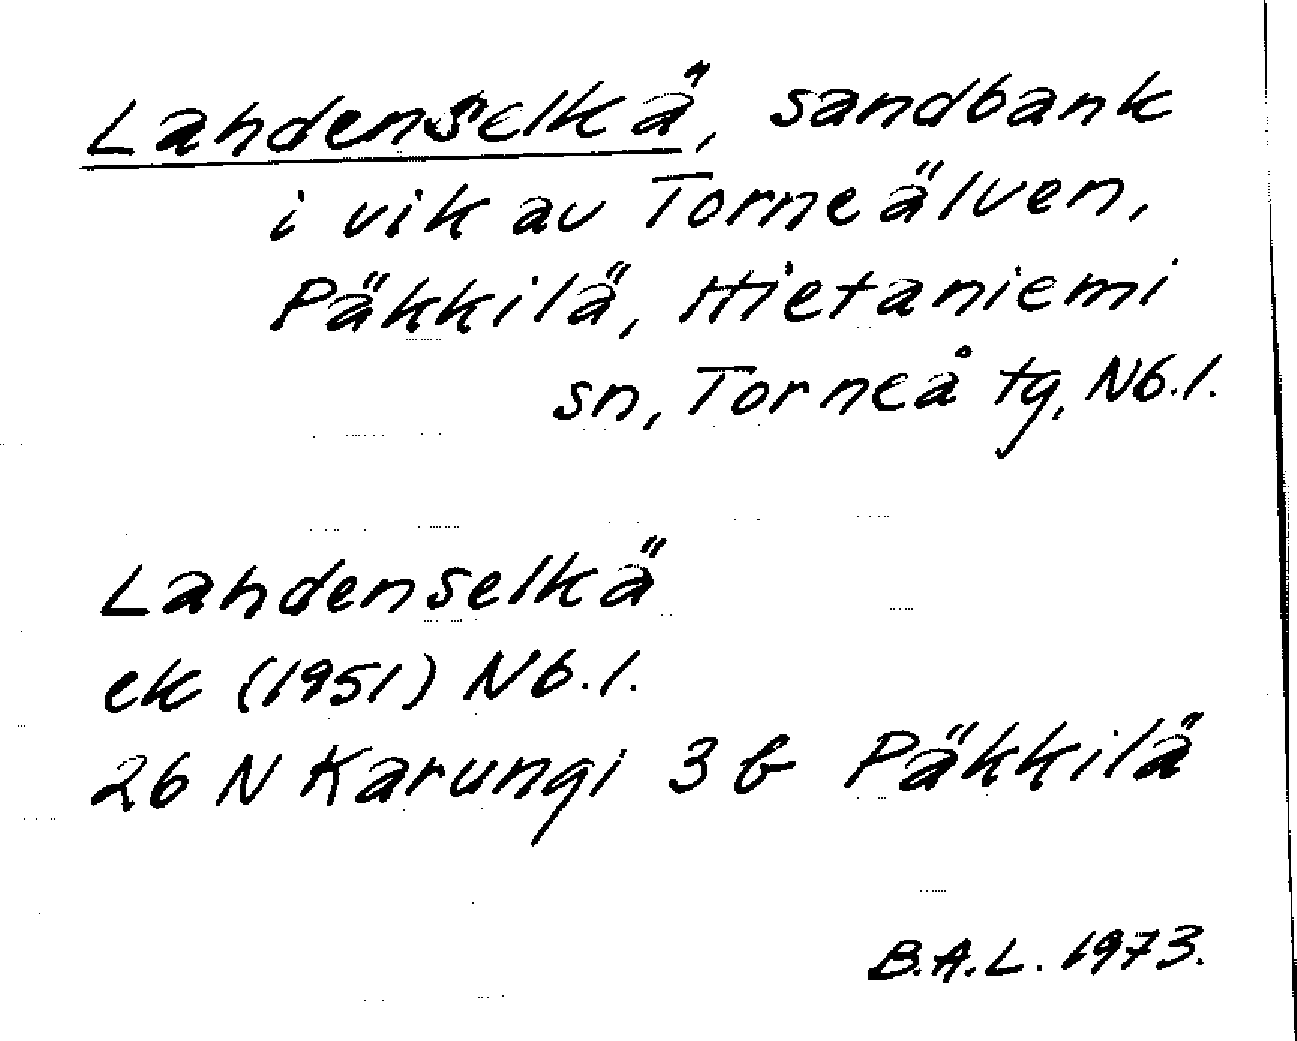 Lahdenselkä, sandbank
i vik av Torneälven,
Päkkilä, Hietaniemi
sn, Torneå tg, Nb.l.
Lahdenselkä
ek (1951) Nb.l.
26 N Karungi 3 b Päkkilä
B.A.L. 1973.